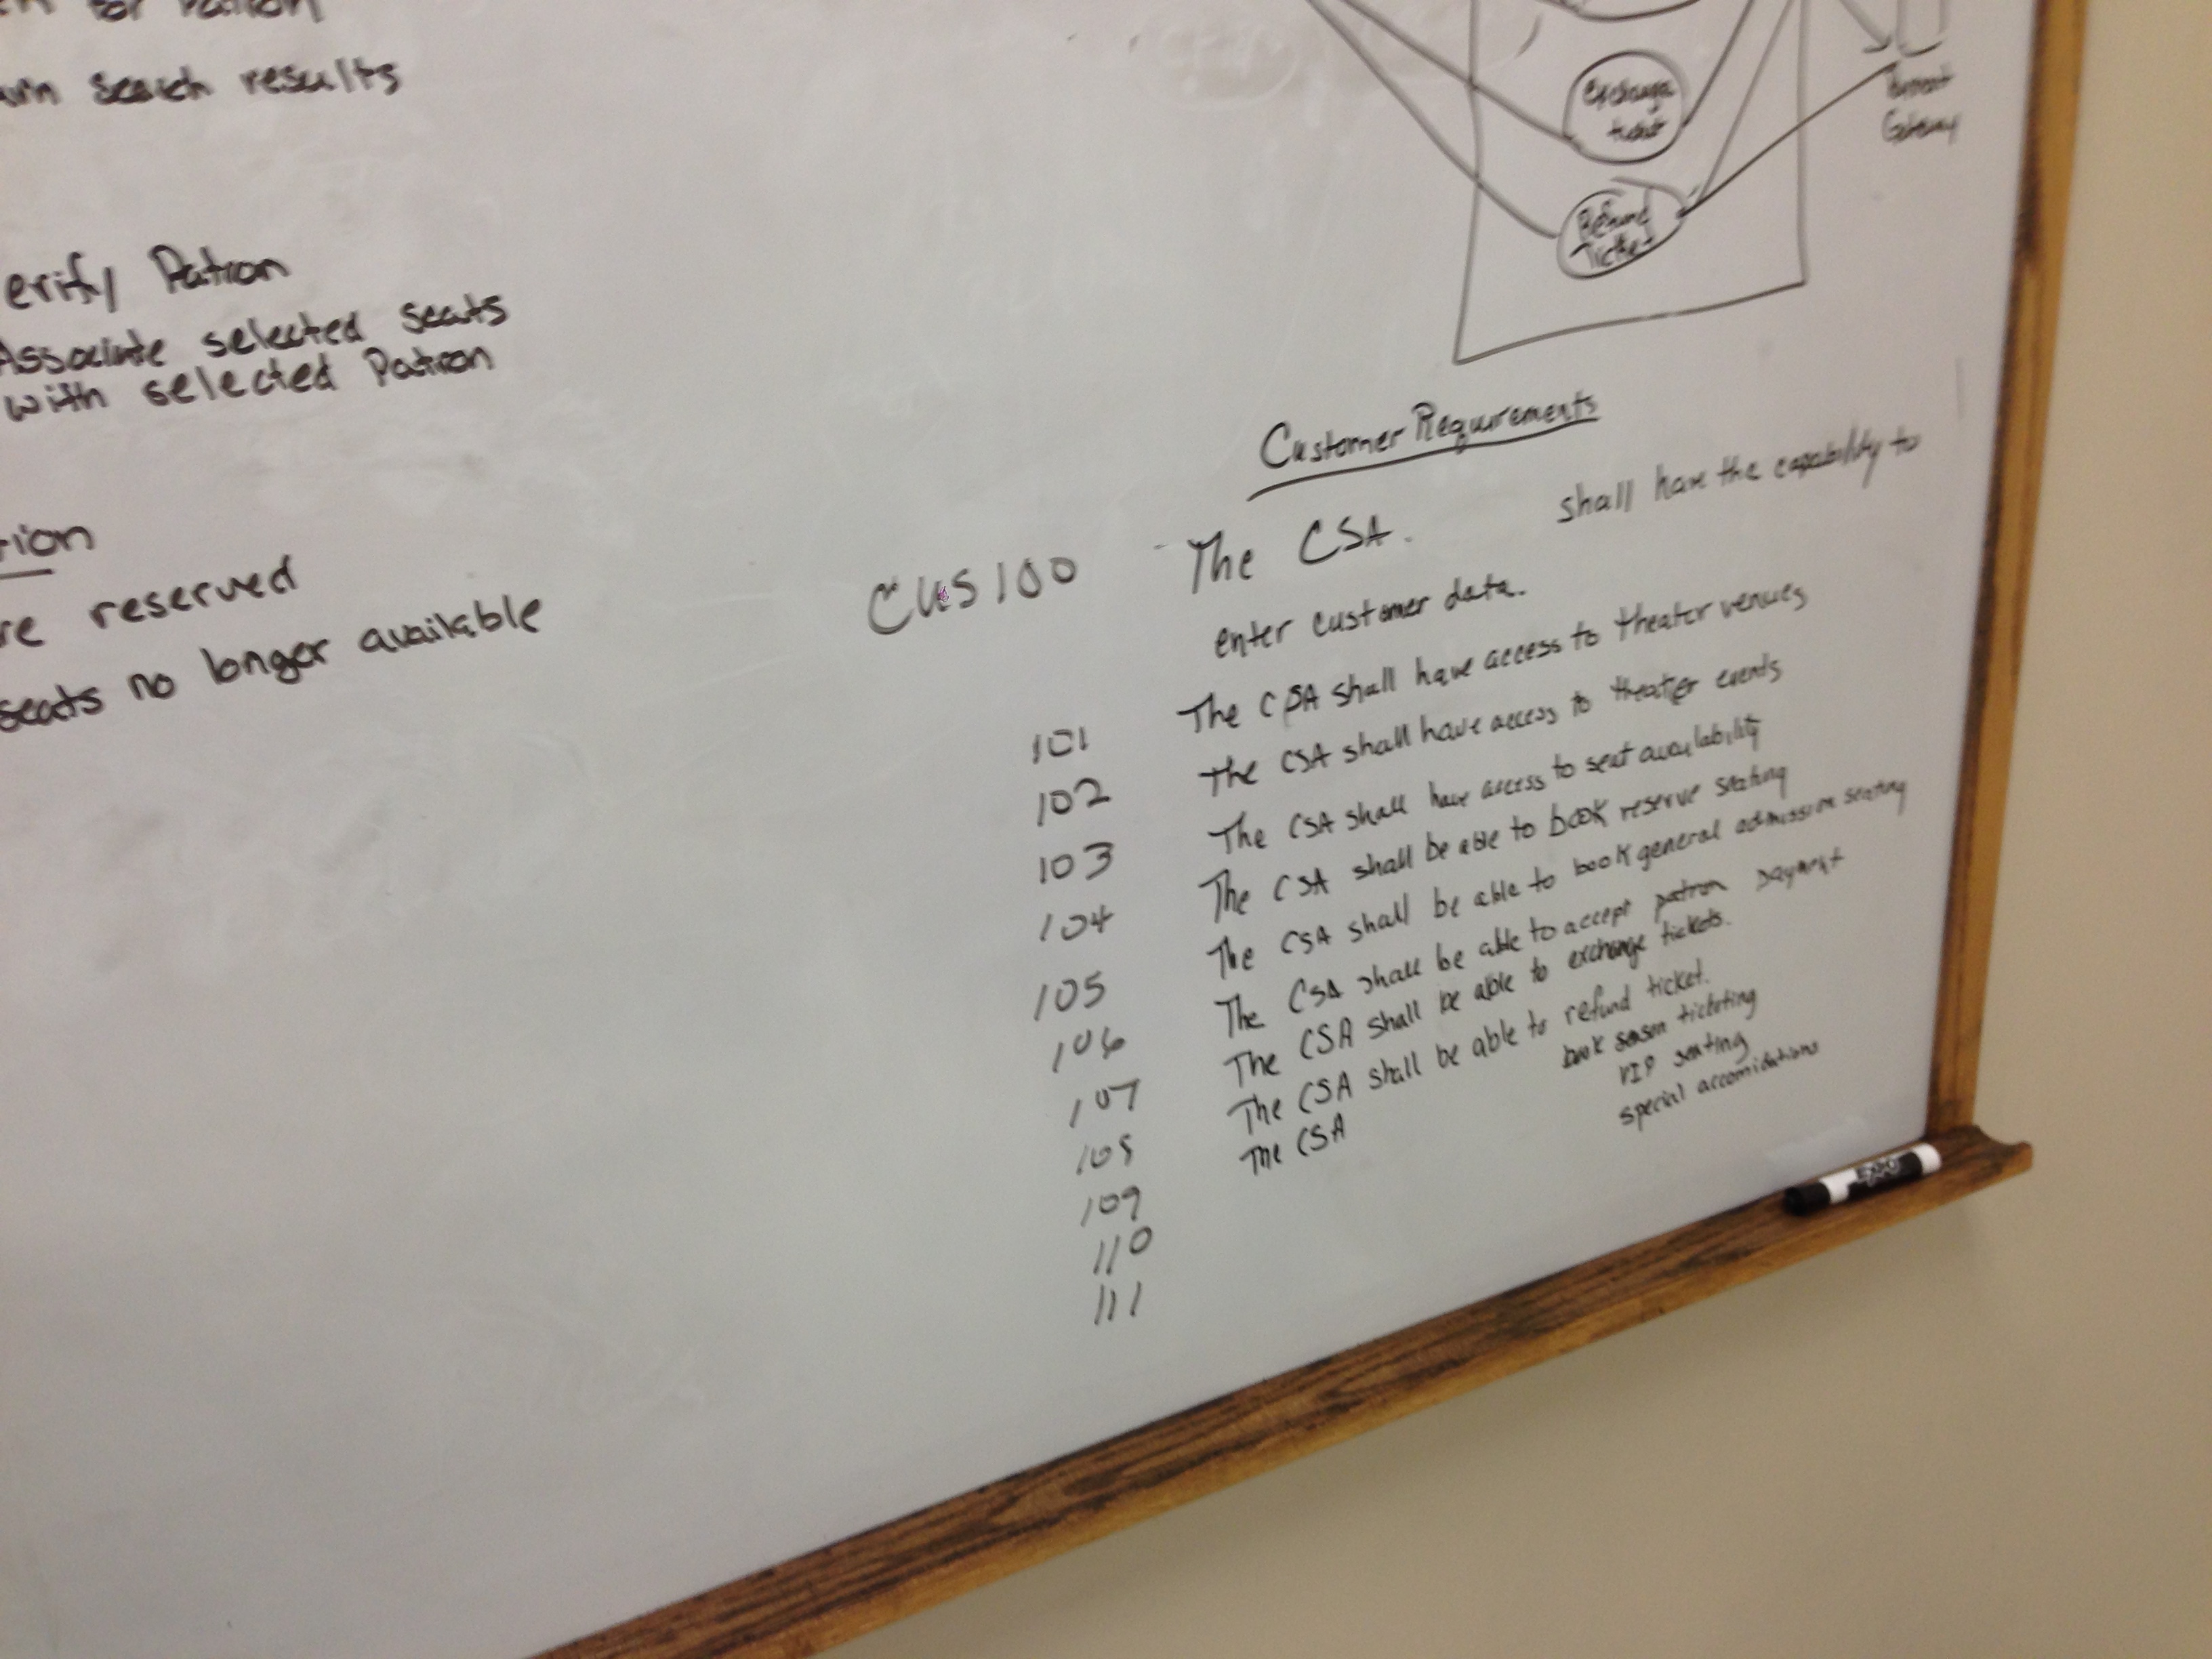 for Patron
search results
erify Patron
Associate selected seats
with selected Patron
tion
re reserved
seats no longer available
Exchange
ticket
Refund
Ticket
Gateway
Customer Requirements
CUS 100 The CSA. shall have the capability to
enter customer data.
101 The CSA shall have access to theater venues
102 The CSA shall have access to theater events
103 The CSA shall have access to seat availability
104 The CSA shall be able to book reserve seating
105 The CSA shall be able to book general admission seating
106 The CSA shall be able to accept patron payment
107 The CSA shall be able to exchange tickets.
108 The CSA shall be able to refund ticket.
109 The CSA book season ticketing
110 VIP seating
111 special accomidations
EXPO